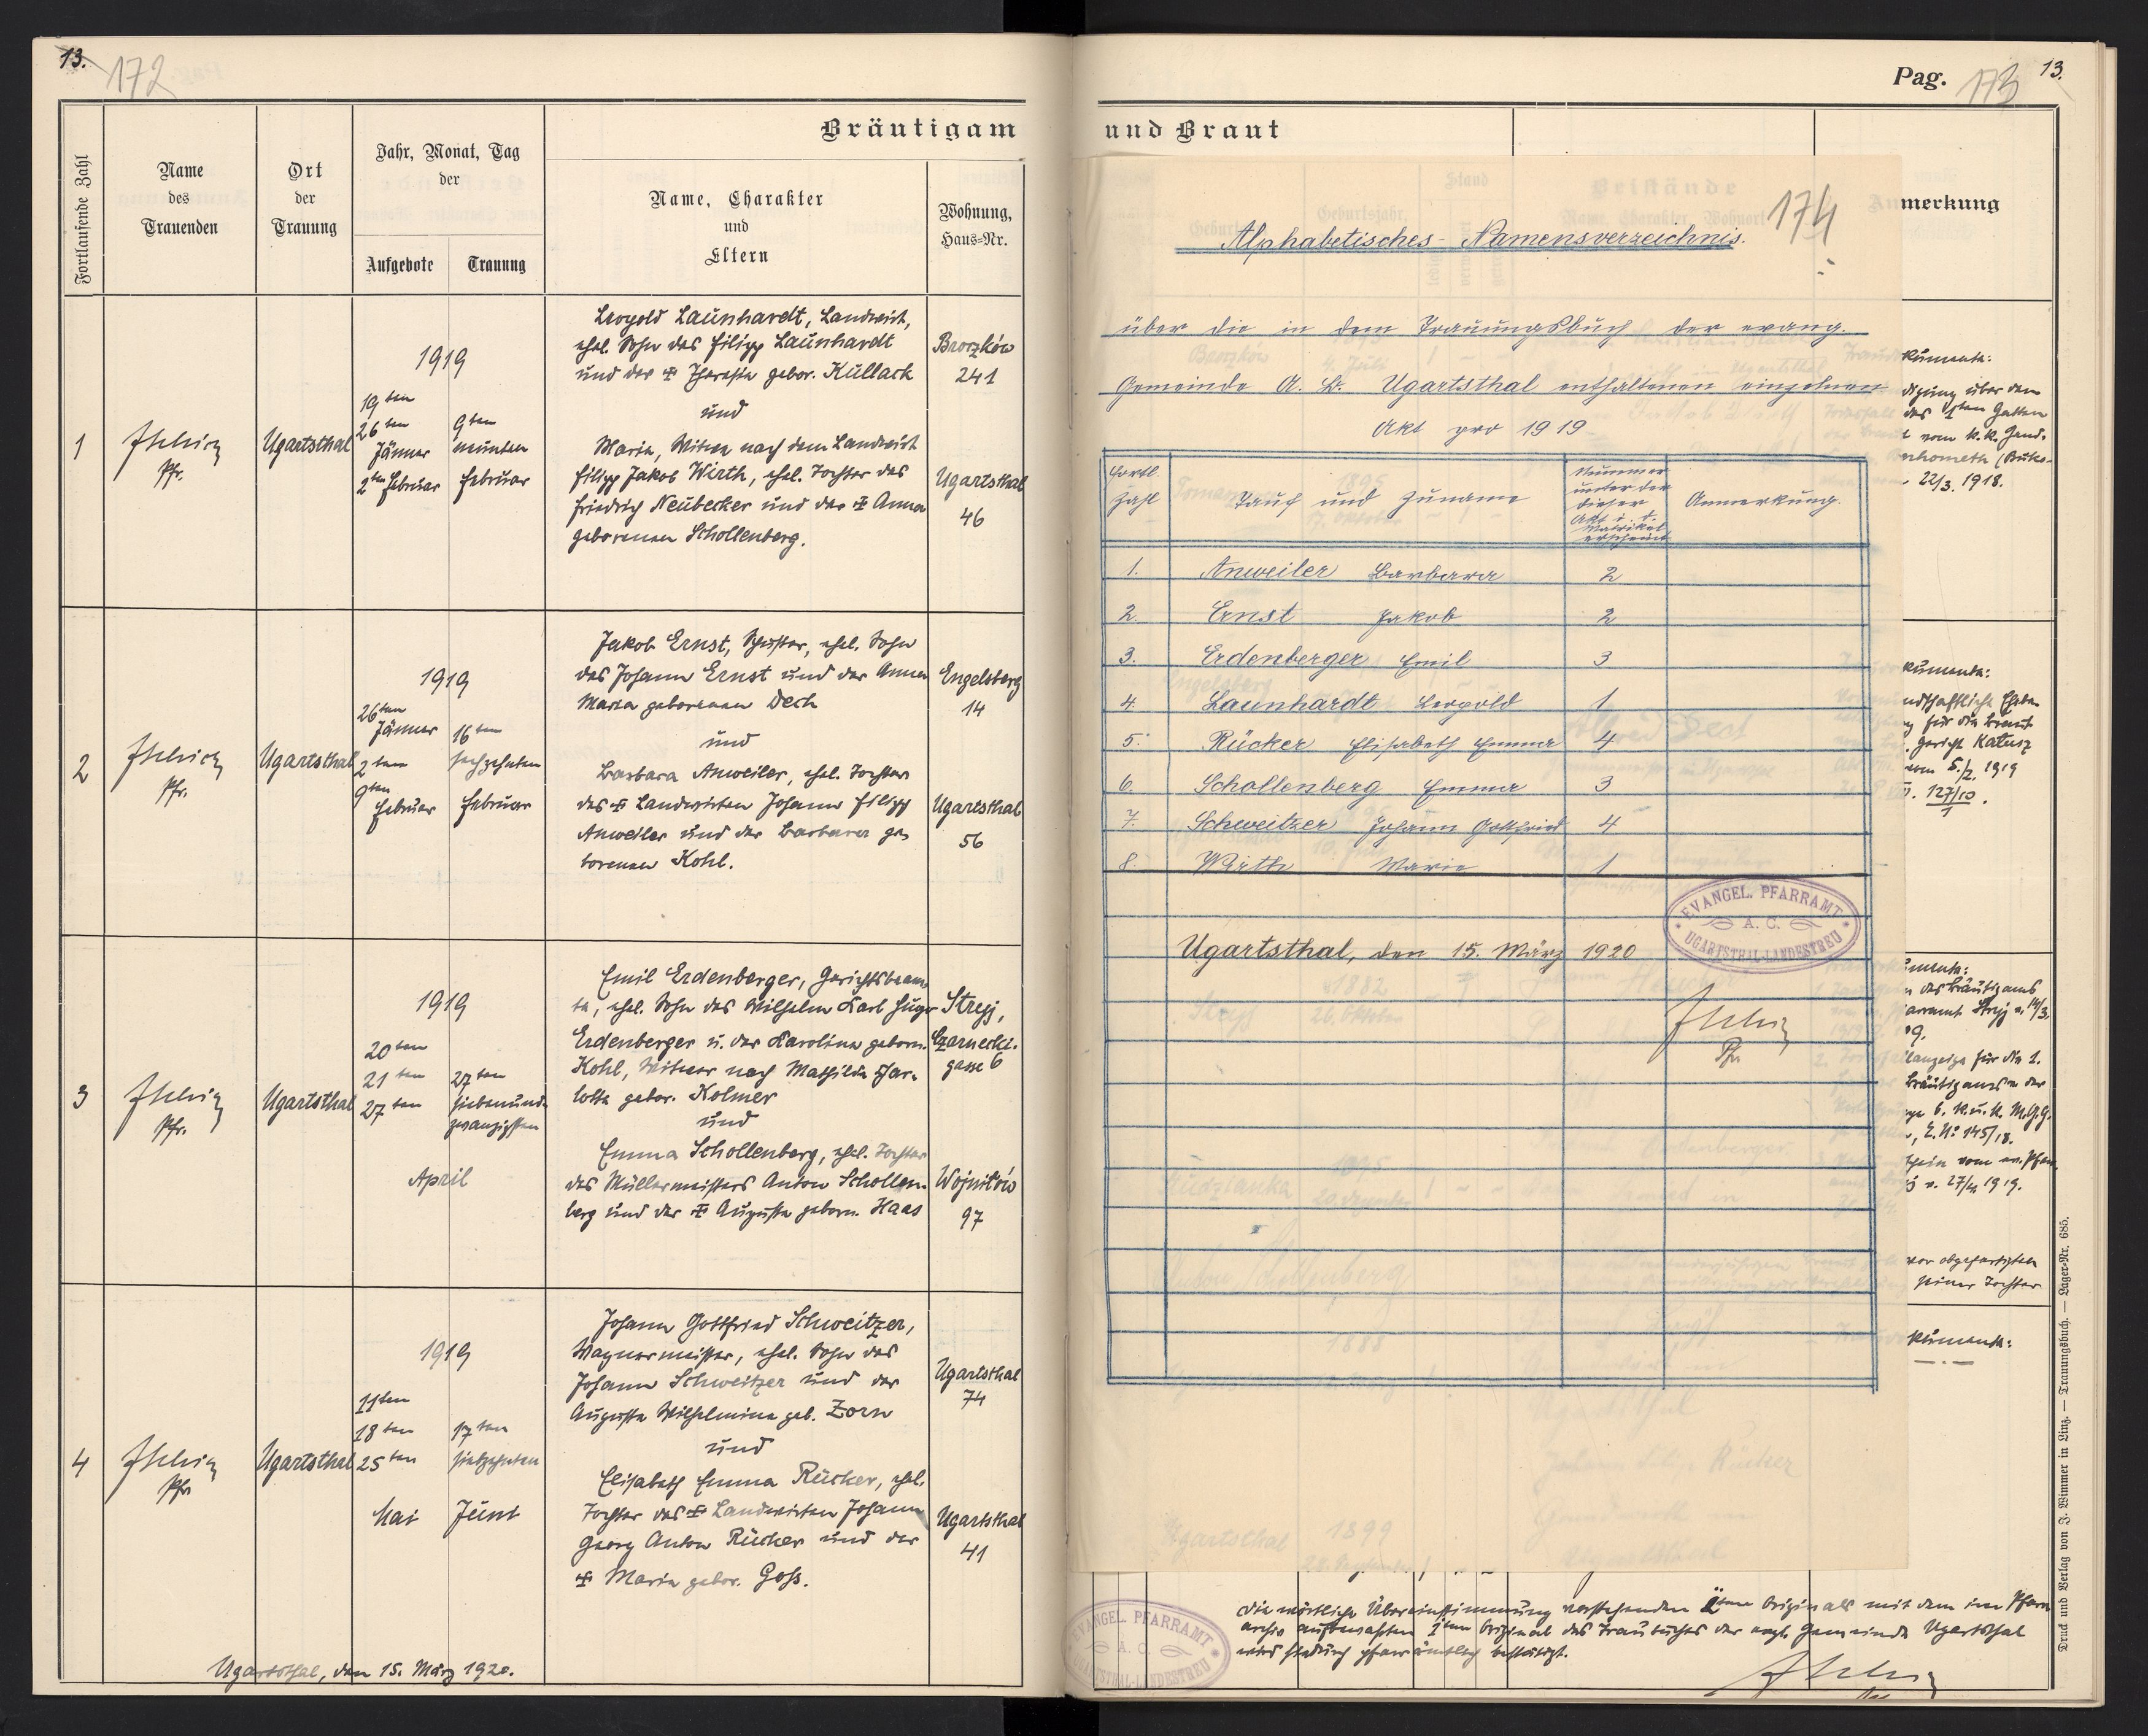 13.
172
Bräutigam
Fortlaufende Zahl
Name
des
Trauenden
Ort
der
Trauung
Jahr, Monat, Tag
der
Aufgebote
Trauung
Name, Charakter
und
Eltern
Wohnung,
Haus=Nr.
1
Pfr.
Ugartsthal
1919
19ten
26ten
Jänner
2ten Februar
9ten
neunten
Februar
Leopold Launhardt, Landwirt,
ehel. Sohn des Filipp Launhardt
und der Therese gebor. Kullack
und
Maria, Witwe nach dem Landwirt
Filipp Jakob Wirth, ehel. Tochter des
Friedrich Neubecker und der Anna
geborenen Schollenberg.
Broczków
241
Ugartsthal
46
2
Pfr.
Ugartsthal
1919
26ten
Jänner
2ten
9ten
Februar
16ten
sechzehnten
Februar
Jakob Ernst, Schuster, ehel. Sohn
des Johann Ernst und der Anna
Maria geborenen Dech
und
Barbara Anweiler, ehel. Tochter
des Landwirten Johann Filipp
Anweiler und der Barbara ge-
borenen Kohl.
Engelsberg
14
Ugartsthal
56
3
Pfr.
Ugartsthal
1919
20ten
21ten
27ten
27ten
siebenund-
zwanzigsten
April
Emil Erdenberger, Gerichtsbeam-
te, ehel. Sohn des Wilhelm Karl Hugo
Erdenberger u. der Karolina geborn.
Kohl, Witwer nach Mathilde Char-
lotte gebor. Kolmer
und
Emma Schollenberg, ehel. Tochter
des Müllermeisters Anton Schollen-
berg und der Augusta geborn. Haas
Stryj,
Czarnecki-
gasse 6
Wojniłów
97
4
Pfr.
Ugartsthal
1919
11ten
18ten
25ten
Mai
17ten
siebzehnten
Juni
Johann Gottfried Schweitzer,
Wagnermeister, ehel. Sohn des
Johann Schweitzer und der
Augusta Wilhelmine geb. Zorn
und
Elisabeth Emma Rücker, ehel.
Tochter des Landwirten Johann
Georg Anton Rücker und der
Maria gebor. Goss.
Ugartsthal
74
Ugartsthal
41
Ugartsthal, den 15. März 1920.
Pag. 173 13.
und Braut
Anmerkung
174
Alphabetisches Namensverzeichnis.
über die in dem Trauungsbuch der evang.
Gemeinde A. B. Ugartsthal enthaltenen einzelnen
Akt pro 1919
Fortl.
Zahl
Tauf und Zuname
Nummer
unter der
dieser
Akt i. d.
Matrikel
erscheint
Anmerkung.
1. Anweiler Barbara 2
2. Ernst Jakob 2
3. Erdenberger Emil 3
4. Launhardt Leopold 1
5. Rücker Elisabeth Emma 4
6. Schollenberg Emma 3
7. Schweitzer Johann Gottfried 4
8. Wirth Marie 1
EVANGEL. PFARRAMT
A. C.
UGARTSTHAL-LANDESTREU
Ugartsthal, den 15. März 1920
Pfr.
kumente:
digung über den
des 1sten Gatten
vom k.k. Gend.
22/3. 1918.
kumente:
für die Braut
gericht Kałusz
vom 5./2. 1919
127/19
des Bräutigams
Stryj v. 14/3.
anzeige für die 1.
Bräutigams der
6. k.u.k. M.G.G.
145/18.
schein vom ev. Pfarr-
v. 27/4 1919.
vor abgefertigten
seiner Tochter
kumente:
EVANGEL. PFARRAMT
A. C.
UGARTSTHAL-LANDESTREU
Die wörtliche Übereinstimmung vorstehenden 2ten Originals mit dem im Pfarr-
archiv aufbewahrten 1ten Original des Traubuches der evgl. Gemeinde Ugartsthal
wird hiedurch pfarrämtlich bestätigt.
Druck und Verlag von J. Wimmer in Linz. — Trauungsbuch. — Lager=Nr. 685.